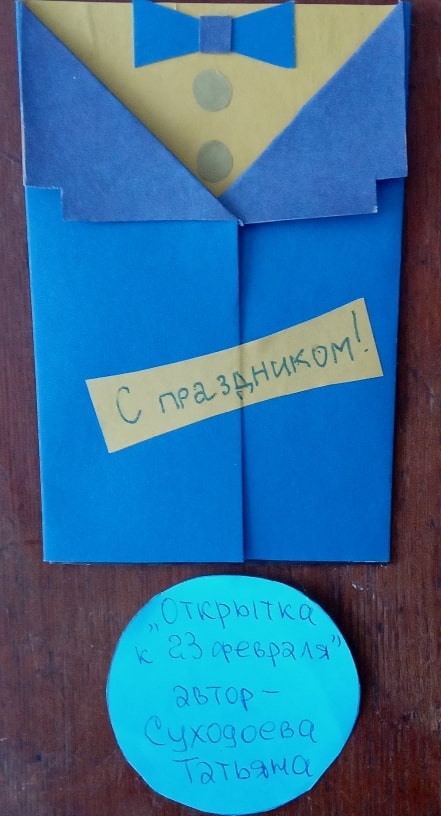 С праздником!
„Открытка
к 23 февраля"
автор -
Суходоева
Татьяна